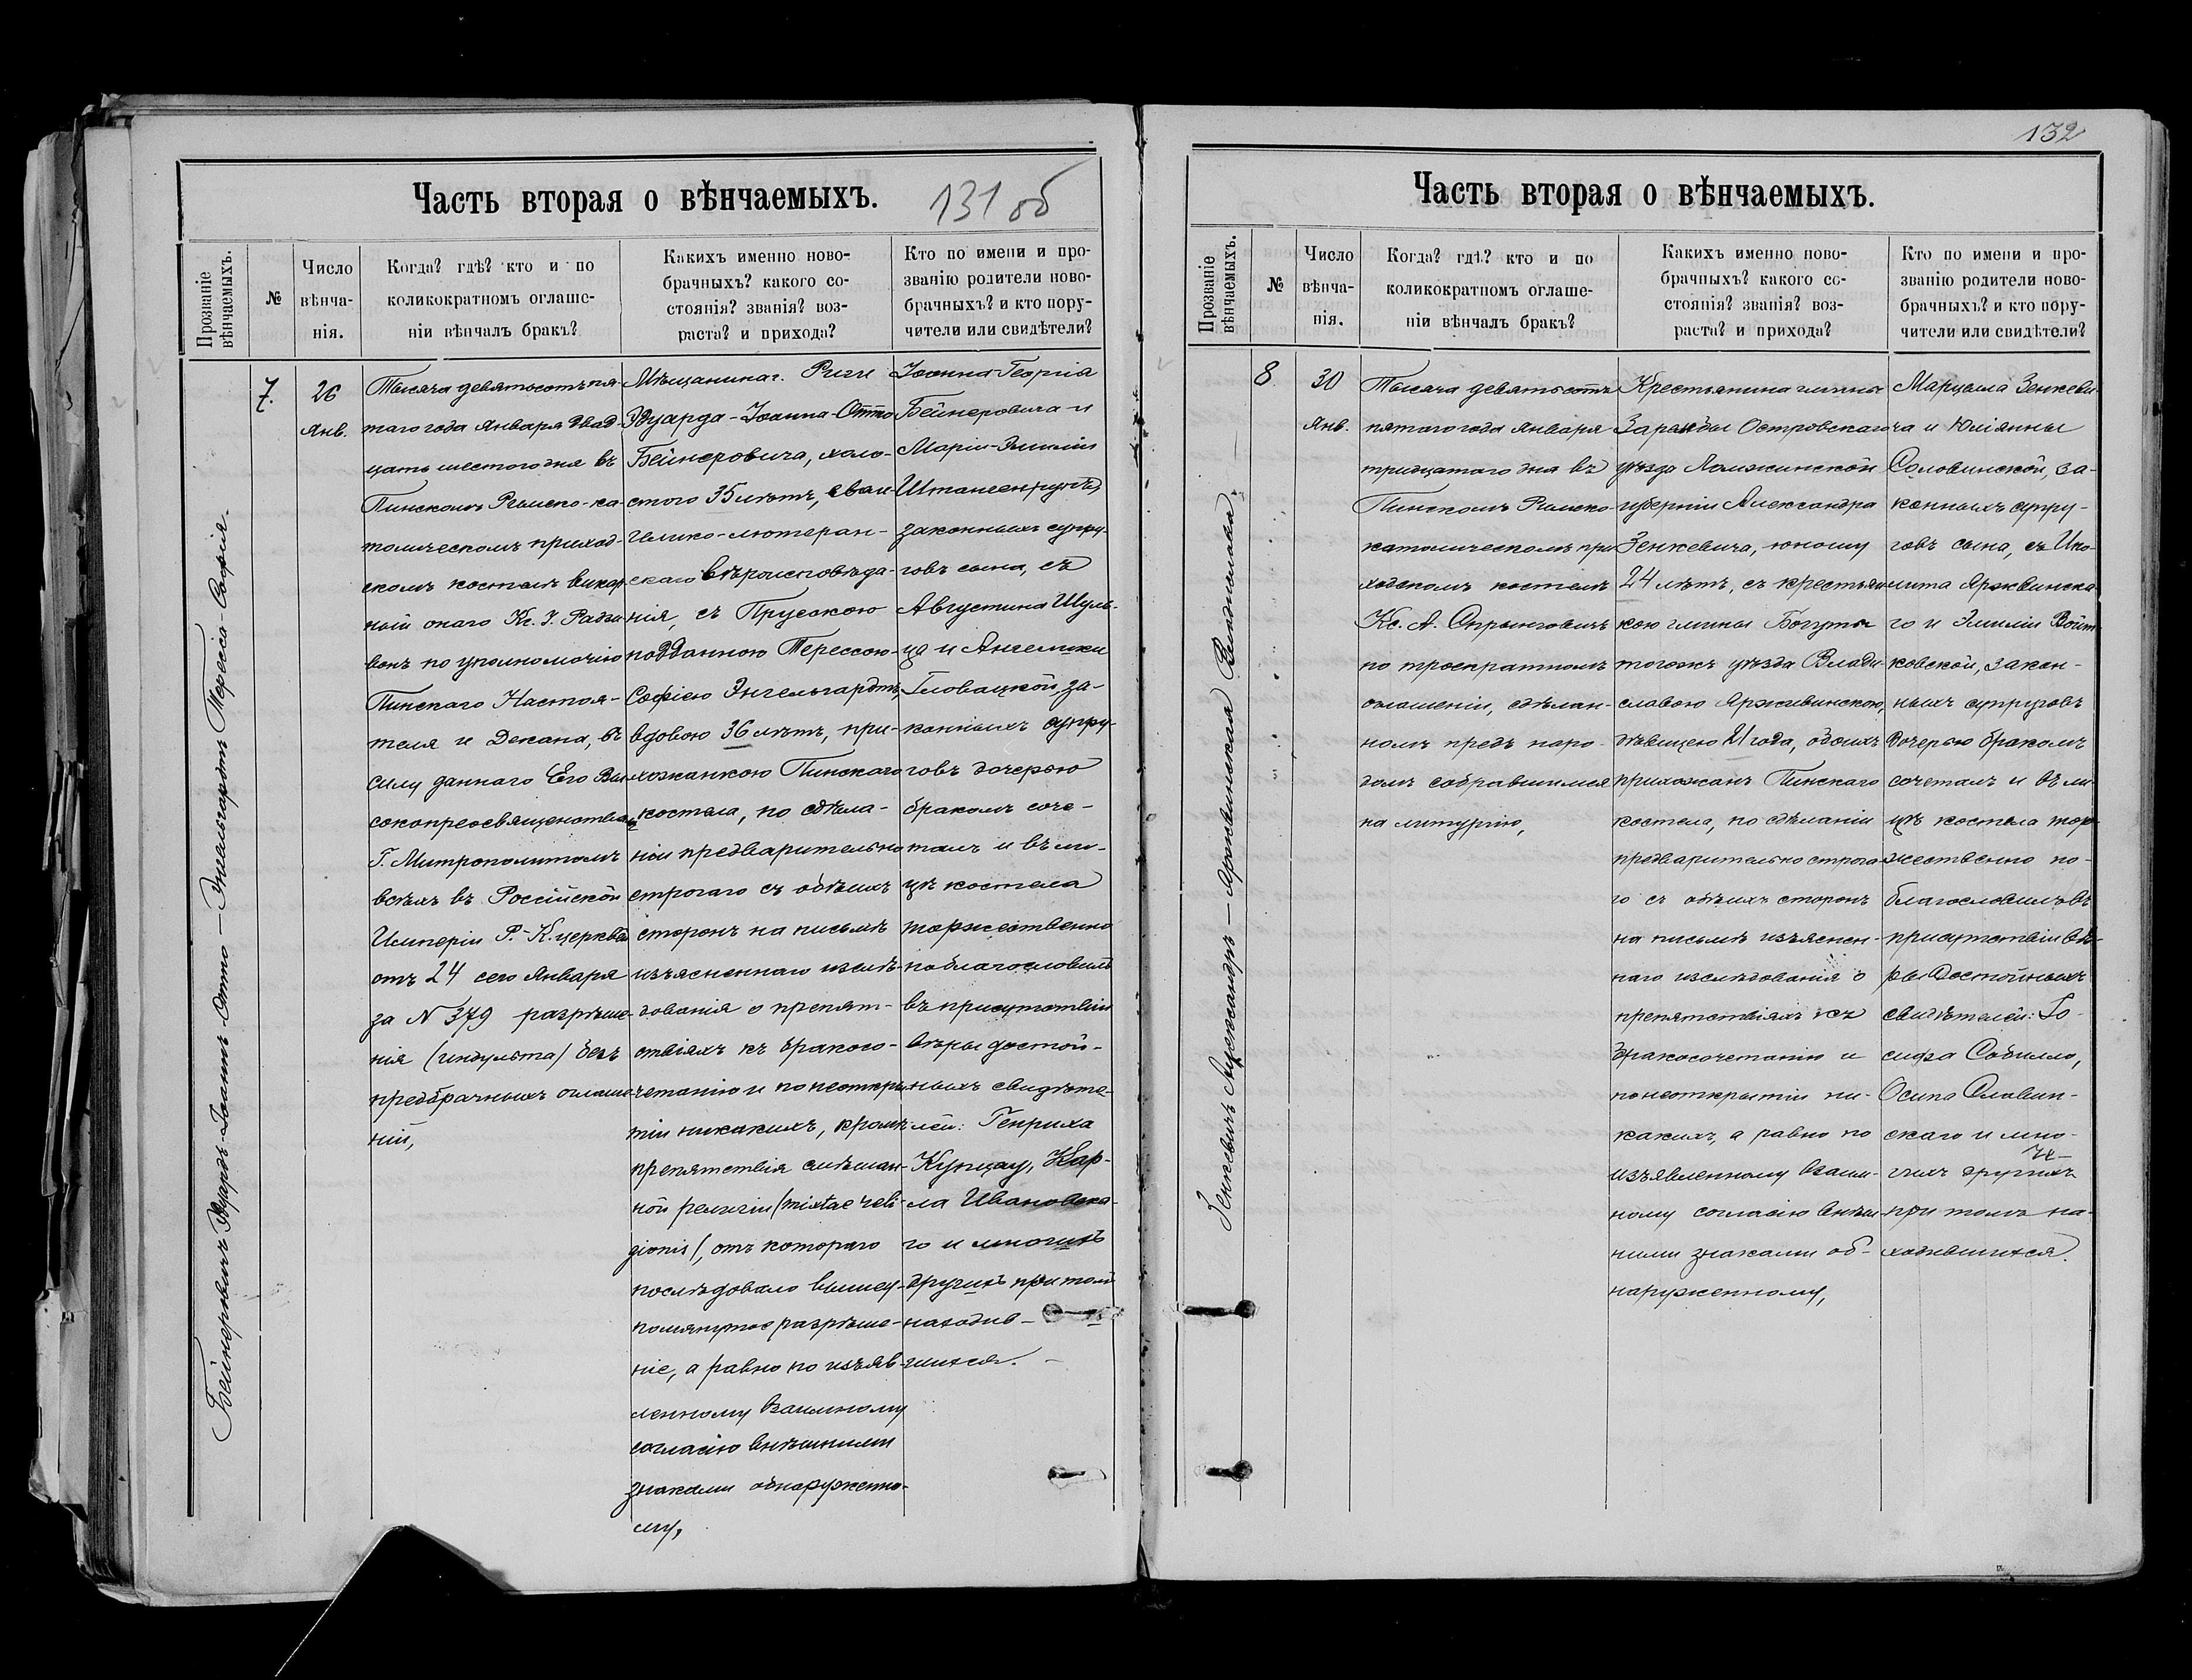 Часть вторая о вѣнчаемыхъ.
131 об
Прозваніе вѣнчаемыхъ.
№
Число вѣнча-
нія.
Когда? гдѣ? кто и по
коликократномъ оглаше-
ніи вѣнчалъ бракъ?
Какихъ именно ново-
брачныхъ? какого со-
стоянія? званія? воз-
раста? и прихода?
Кто по имени и про-
званію родители ново-
брачныхъ? и кто пору-
чители или свидѣтели?
Бейнеровичъ Эдуардъ-Іоаннъ-Отто — Энгельгардтъ Тереса-Софія.
7.
26
Янв.
Тысяча девятьсотъ пя-
таго года Января двад-
цать шестого дня въ
Пинскомъ Римско-ка-
толическомъ приход-
скомъ костелѣ викар-
ный онаго Кс. І. Радзи
вонъ по уполномочію
Пинскаго Настоя-
теля и Декана, въ
силу даннаго Его Вы-
сокопреосвященствомъ
Г. Митрополитомъ
всѣхъ въ Россійской
Имперіи Р.-К. церквей
отъ 24 сего Января
за N 379 разрѣше-
нія (индульта) безъ
предбрачныхъ оглаше-
ній,
Мѣщанина г. Риги
Эдуарда-Іоанна-Отто
Бейнеровича, холо-
стого 35 лѣтъ, еван-
гелико-лютеран-
скаго вѣроисповѣда-
нія, съ Прусскою
подданною Терессою-
Софіею Энгельгардтъ,
вдовою 36 лѣтъ, при-
хожанкою Пинскаго
костела, по сдѣла-
ніи предварительно
строгаго съ обѣихъ
сторонъ на письмѣ
изъясненнаго изслѣ-
дованія о препят-
ствіяхъ къ бракосо-
четанію и по неоткры-
тіи никакихъ, кромѣ
препятствія смѣшан-
ной религіи (mixtae reli-
gionis), отъ котораго
послѣдовало вышеу-
помянутое разрѣше-
ніе, а равно по изъяв-
ленному взаимному
согласію внѣшними
знаками обнаруженно-
му,
Іоанна-Георгія
Бейнеровича и
Маріи-Эмиліи
законныхъ супру-
говъ сына, съ
Августина Шуль-
ца и Ангелики
Гловацкой, за-
конныхъ супру-
говъ дочерью
бракомъ соче-
талъ и въ ли-
цѣ костела
торжественно
поблагословилъ
въ присутствіи
вѣры достой-
ныхъ свидѣте-
лей: Генриха
Кунцау, Кар-
ла Ивановска-
го и многихъ
другихъ при томъ
находив-
шихся.
132
Часть вторая о вѣнчаемыхъ.
Прозваніе вѣнчаемыхъ.
№
Число вѣнча-
нія.
Когда? гдѣ? кто и по
коликократномъ оглаше-
ніи вѣнчалъ бракъ?
Какихъ именно ново-
брачныхъ? какого со-
стоянія? званія? воз-
раста? и прихода?
Кто по имени и про-
званію родители ново-
брачныхъ? и кто пору-
чители или свидѣтели?
Зенкевичъ Александръ — Яржвинская Владислава.
8
30
Янв.
Тысяча девятьсотъ
пятаго года Января
тридцатаго дня въ
Пинскомъ Римско-
католическомъ при
ходскомъ костелѣ
Кс. А. Опрынговичъ
по троекратномъ
оглашеніи, сдѣлан-
номъ предъ наро-
домъ собравшимся
на литургію,
Крестьянина гмины
Зарембы Островскаго
уѣзда Ломжинской
губерніи Александра
Зенкевича, юношу
24 лѣтъ, съ крестьян-
кою гмины Богуты
тогожъ уѣзда Влади-
славою Яржвинскою,
дѣвицею 21 года, обоихъ
прихожанъ Пинскаго
костела, по сдѣланіи
предварительно строга-
го съ обѣихъ сторонъ
на письмѣ изъяснен-
наго изслѣдованія о
препятствіяхъ къ
бракосочетанію и
по неоткрытіи ни-
какихъ, а равно по
изъявленному взаим-
ному согласію внѣш-
ними знаками об-
наруженному,
Марцела Зенкеви-
ча и Юліанны
Соловинской, за-
конныхъ супру-
говъ сына, съ Ипо-
лита Яржвинска
го и Эмиліи Войт-
ковской, закон-
ныхъ супруговъ
дочерью бракомъ
сочеталъ и въ ли-
цѣ костела тор-
жественно по-
благословилъ въ
присутствіи вѣ-
ры достойныхъ
свидѣтелей: Іо-
сифа Собилло,
Осипа Славин-
скаго и мно-
гихъ другихъ
при томъ на-
ходившихся.